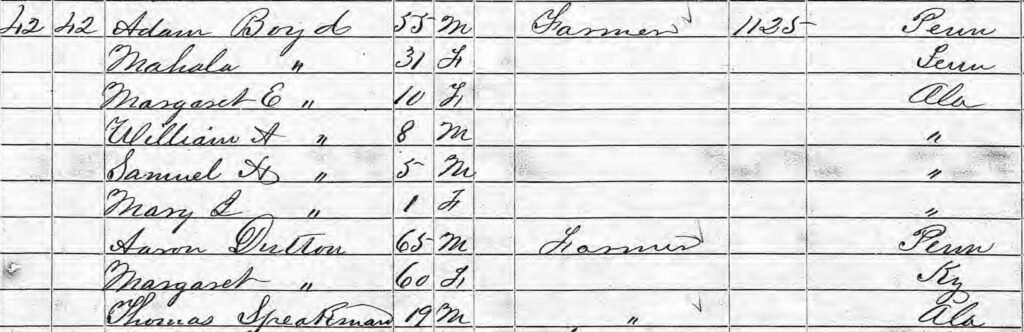 42 42 Adam Boyd 55 M Farmer 1125 Penn
Mahala " 31 F Tenn
Margaret E " 10 F Ala
William A " 8 M "
Samuel H " 5 M "
Mary " 1 F "
Aaron Dutton 65 M Farmer Penn
Margaret " 60 F Ky
Thomas Speakman 19 M " Ala